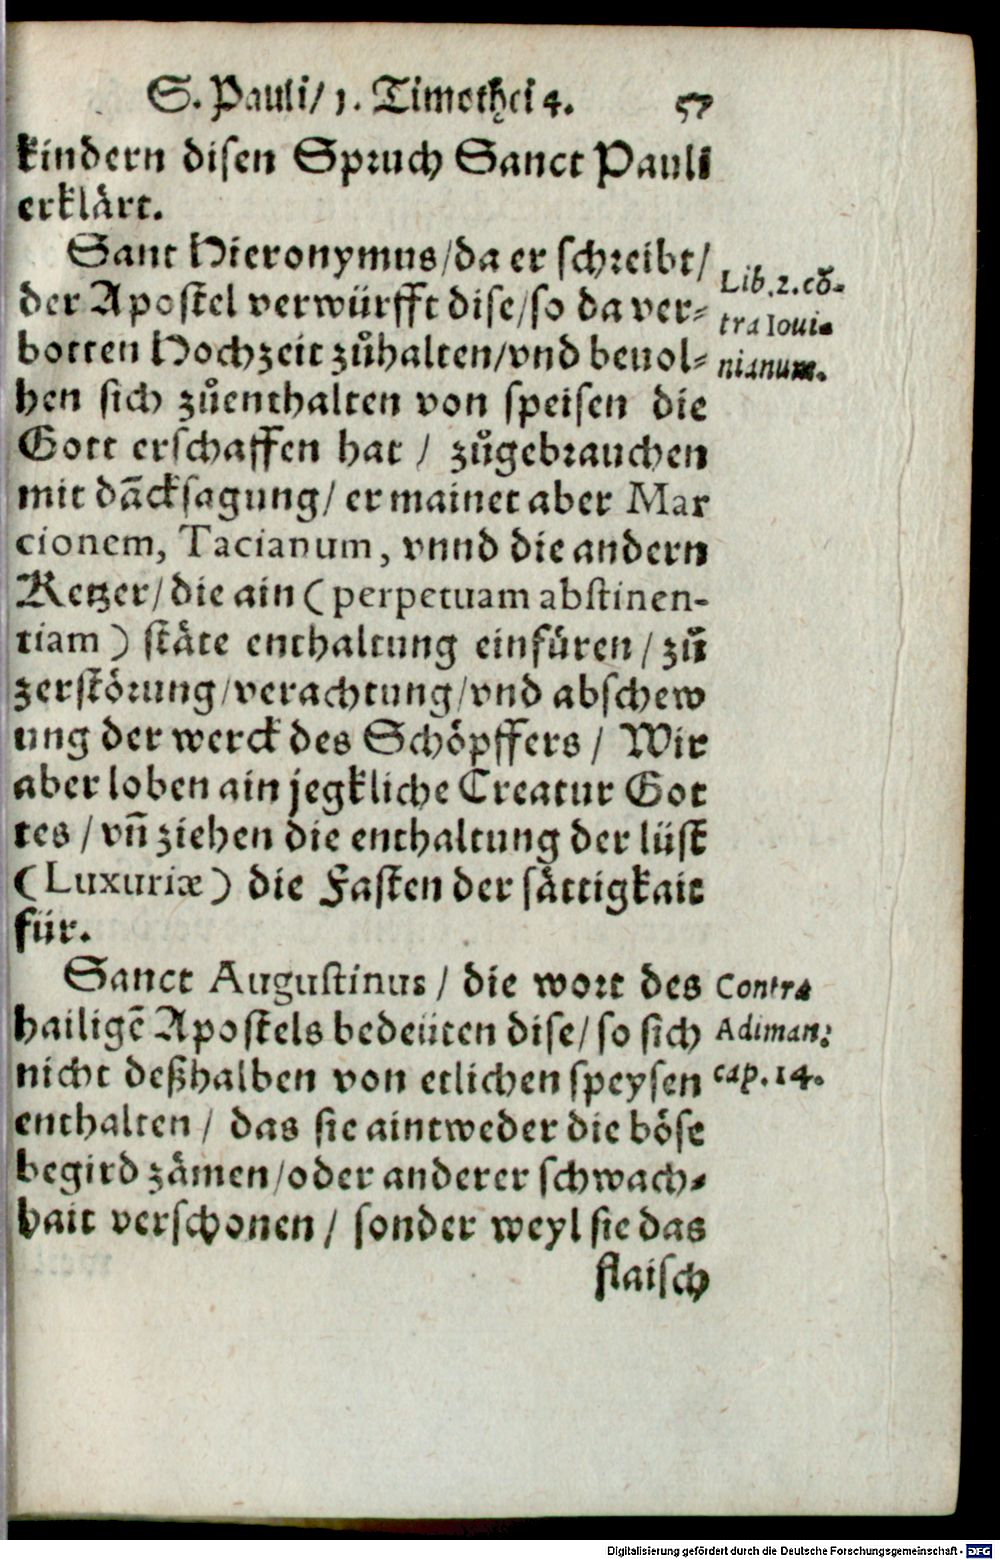 S. Pauli/ 1. Timothei 4. 57
kindern disen Spruch Sanct Pauli
erklärt.
Sant Hieronymus/da er schreibt/
der Apostel verwürfft dise/so da ver-
botten Hochzeit zůhalten/vnd beuol-
hen sich zůenthalten von speisen die
Gott erschaffen hat / zůgebrauchen
mit dãcksagung/ er mainet aber Mar
cionem, Tacianum, vnnd die andern
Ketzer/die ain (perpetuam abstinen-
tiam) stäte enthaltung einfüren/ zů
zerstörung/verachtung/vnd abschew
ung der werck des Schöpffers / Wir
aber loben ain jegkliche Creatur Got
tes / vñ ziehen die enthaltung der lüst
(Luxuriæ) die Fasten der sättigkait
für.
Lib. 2. cõ-
tra Ioui-
nianum.
Sanct Augustinus / die wort des
hailigẽ Apostels bedeüten dise/ so sich
nicht deßhalben von etlichen speysen
enthalten / das sie aintweder die böse
begird zämen/oder anderer schwach-
hait verschonen / sonder weyl sie das
flaisch
Contra
Adiman:
cap. 14.
Digitalisierung gefördert durch die Deutsche Forschungsgemeinschaft - DFG